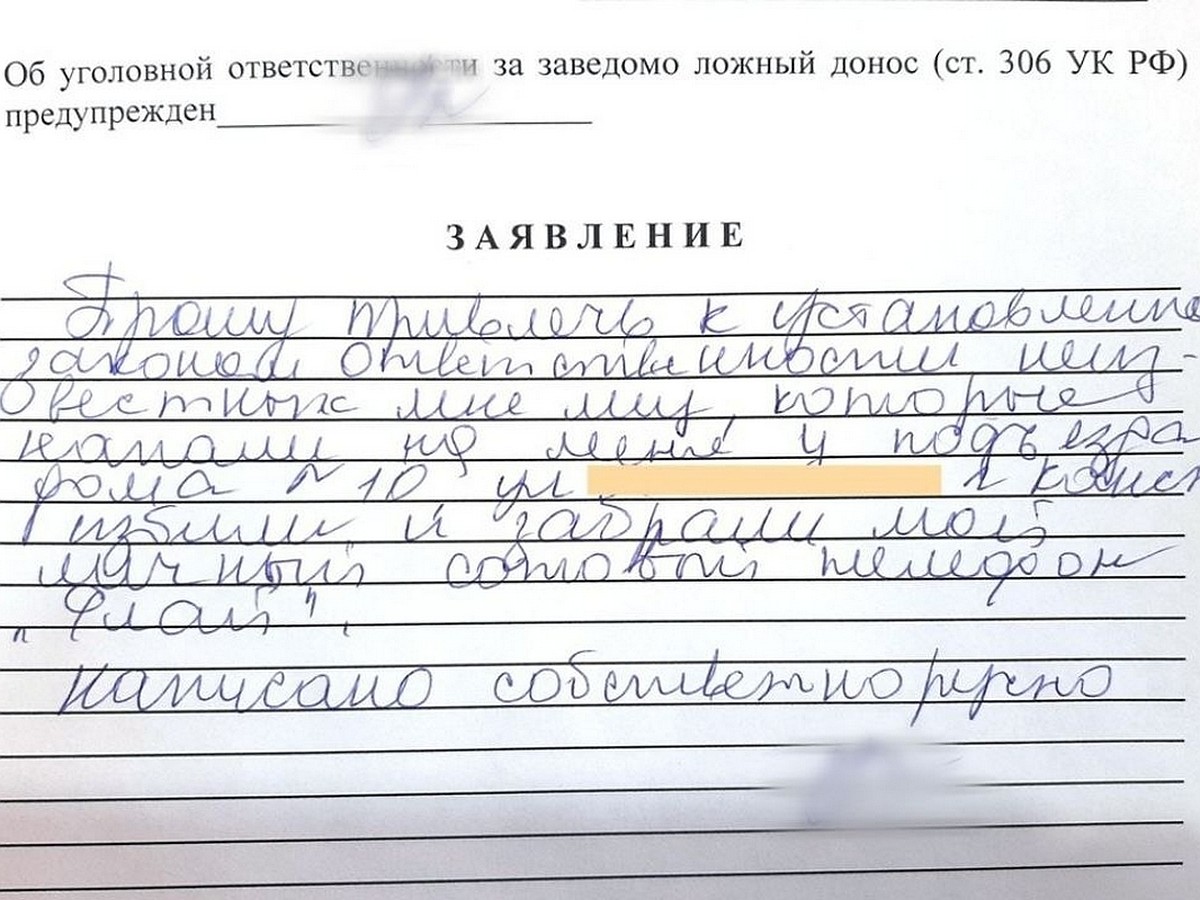 Об уголовной ответственности за заведомо ложный донос (ст. 306 УК РФ)
предупрежден
ЗАЯВЛЕНИЕ
Прошу привлечь к установленно
законом ответственности неиз-
вестных мне лиц, которые
напали на меня у подъезда
дома № 10 ул
избили и забрали мой
личный сотовый телефон
„Флай".
Написано собственноручно